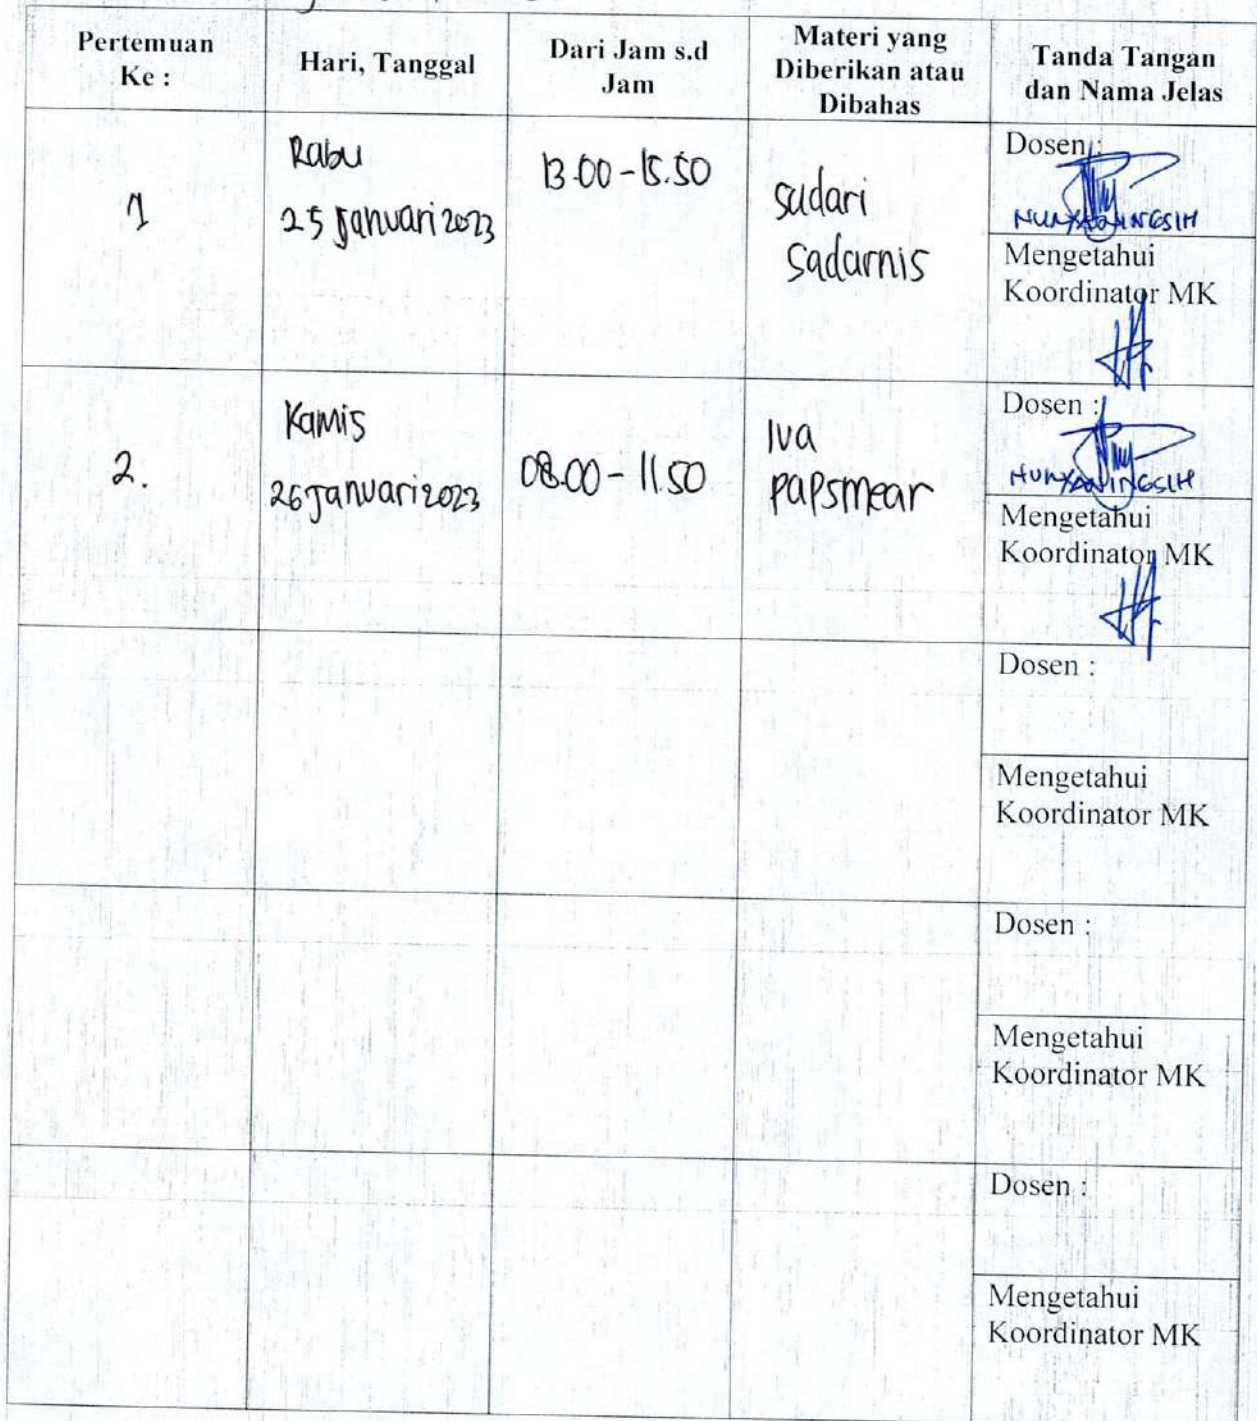 Pertemuan
Ke :
Hari, Tanggal
Dari Jam s.d
Jam
Materi yang
Diberikan atau
Dibahas
Tanda Tangan
dan Nama Jelas
1
Rabu
25 Januari 2023
13.00 - 15.50
sudari
Sadarnis
Dosen :
Mengetahui
Koordinator MK
2.
Kamis
26 Januari 2023
08.00 - 11.50
Iva
papsmear
Dosen :
Mengetahui
Koordinator MK
Dosen :
Mengetahui
Koordinator MK
Dosen :
Mengetahui
Koordinator MK
Dosen :
Mengetahui
Koordinator MK